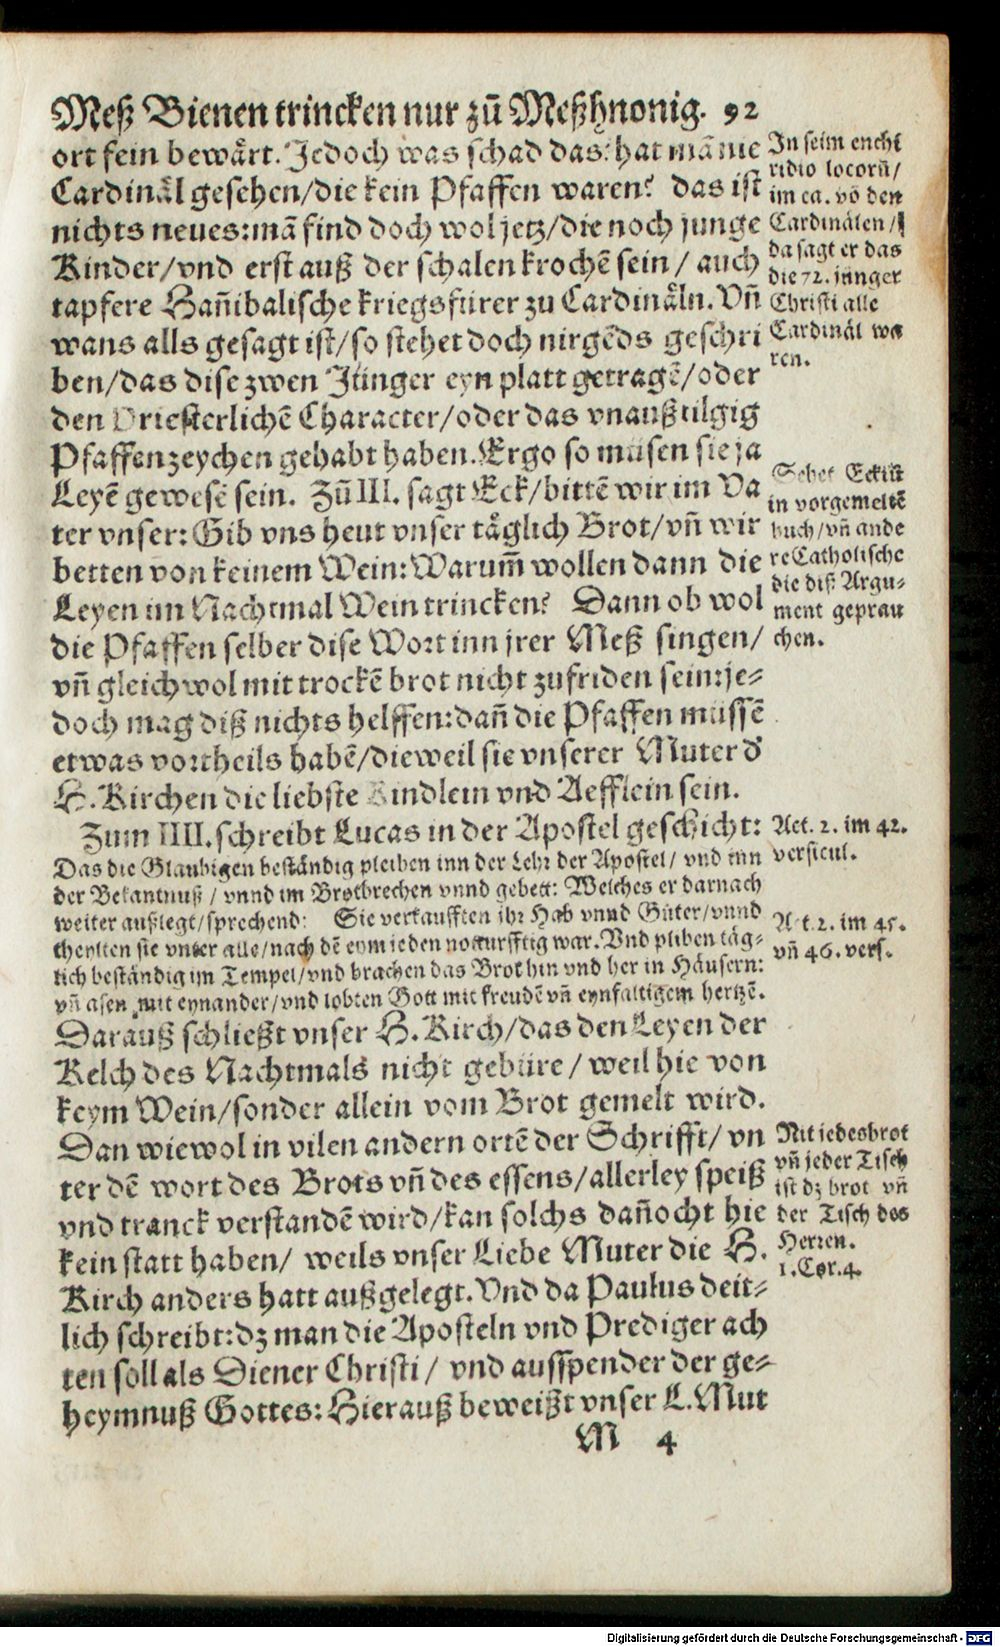 Meß Bienen trincken nur zũ Meßhnonig. 92
ort fein bewärt. Jedoch was schad das: hat mã nie
Cardinäl gesehen/die kein Pfaffen waren? das ist
nichts neues: mã find doch wol jetz/die noch junge
Kinder/vnd erst auß der schalen krochẽ sein / auch
tapfere Hañibalische kriegsfürer zu Cardinäln. Vñ
wans alls gesagt ist/so stehet doch nirgẽds geschri
ben/das dise zwen Jünger eyn platt getragẽ/oder
den Priesterlichẽ Character/oder das vnaußtilgig
Pfaffenzeychen gehabt haben. Ergo so müsen sie ja
Leyẽ gewesẽ sein. Zũ III. sagt Eck/bittẽ wir im Va
ter vnser: Gib vns heut vnser täglich Brot/vñ wir
betten von keinem Wein: Warum̃ wollen dann die
Leyen im Nachtmal Wein trincken? Dann ob wol
die Pfaffen selber dise Wort inn jrer Meß singen/
vñ gleichwol mit trockẽ brot nicht zufriden sein: je-
doch mag diß nichts helffen: dañ die Pfaffen müssẽ
etwas vortheils habẽ/dieweil sie vnserer Muter d̕
H. Kirchen die liebste Kindlein vnd Aefflein sein.
Zum IIII. schreibt Lucas in der Apostel geschicht:
Das die Glaubigen beständig pleiben inn der Lehr der Apostel/ vnd inn
der Bekantnuß / vnnd im Brotbrechen vnnd gebett: Welches er darnach
weiter außlegt/sprechend: Sie verkaufften ihr Hab vnnd Güter/vnnd
theylten sie vnter alle/nach dẽ eym jeden notturfftig war. Vnd pliben täg-
lich beständig im Tempel/vnd brachen das Brot hin vnd her in Häusern:
vñ asen mit eynander/vnd lobten Gott mit freudẽ vñ eynfaltigem hertzẽ.
Darauß schließt vnser H. Kirch/das den Leyen der
Kelch des Nachtmals nicht gebüre / weil hie von
keym Wein/sonder allein vom Brot gemelt wird.
Dan wiewol in vilen andern ortẽ der Schrifft/ vn
ter dẽ wort des Brots vñ des essens/allerley speiß
vnd tranck verstandẽ wird/kan solchs dañocht hie
kein statt haben/ weils vnser Liebe Muter die H.
Kirch anders hatt außgelegt. Vnd da Paulus deit-
lich schreibt: dz man die Aposteln vnd Prediger ach
ten soll als Diener Christi / vnd ausspender der ge-
heymnuß Gottes: Hierauß beweißt vnser L. Mut
M 4
In seim enchi
ridio locorũ/
im ca. võ den
Cardinälen/
da sagt er das
die 72. jünger
Christi alle
Cardinäl wa
ren.
Sehet Eckiũ
in vorgemeltẽ
buch/vñ ande
re Catholische
die diß Argu-
ment geprau
chen.
Act. 2. im 42.
versicul.
Act. 2. im 45.
vñ 46. vers.
Nit jedes brot
vñ jeder Tisch
ist dz brot vñ
der Tisch des
Herren.
1. Cor. 4.
Digitalisierung gefördert durch die Deutsche Forschungsgemeinschaft - DFG